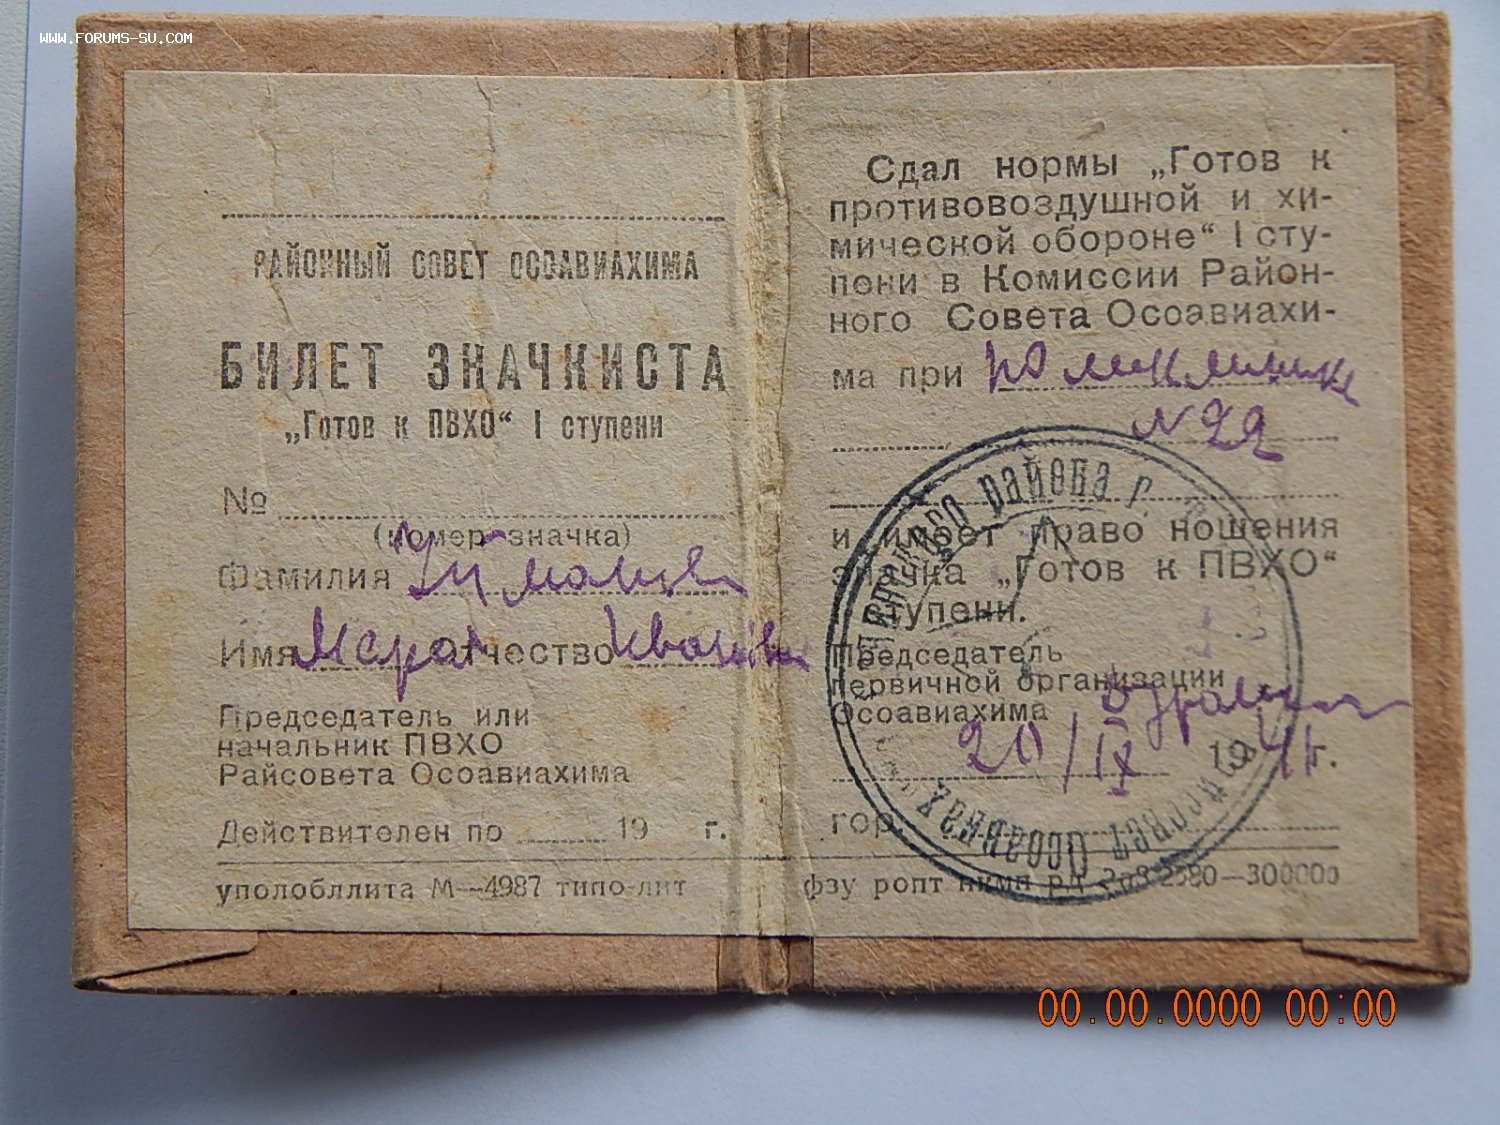 WWW.FORUMS-SU.COM
РАЙОННЫЙ СОВЕТ ОСОАВИАХИМА
БИЛЕТ ЗНАЧКИСТА
„Готов к ПВХО“ I ступени
№
(номер значка)
Фамилия
Имя Отчество
Председатель или
начальник ПВХО
Райсовета Осоавиахима
Действителен по 19 г.
уполобллита М—4987 типо-лит
Сдал нормы „Готов к
противовоздушной и хи-
мической обороне“ I сту-
пени в Комиссии Район-
ного Совета Осоавиахи-
ма при
и имеет право ношения
значка „Готов к ПВХО“
ступени.
Председатель
первичной организации
Осоавиахима
20/IX 1941 г.
гор.
фзу ропт 2580—300000
района г.
Осоавиах
00.00.0000 00:00